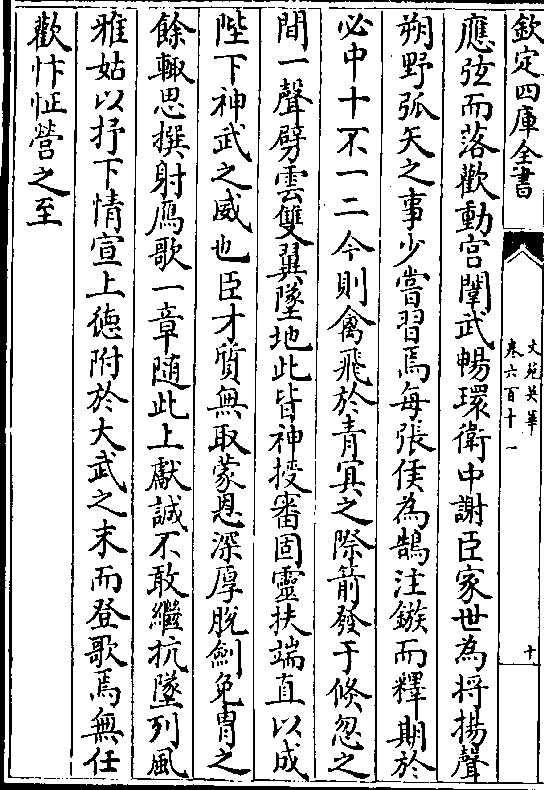 欽定四庫全書
文苑英華
卷六百十一
十
應弦而落歡動宫闈武暢環衛中謝臣家世為将揚聲
朔野弧矢之事少嘗習焉每張侯為鵠注鏃而釋期於
必中十不一二今則禽飛於青冥之際箭發于倐忽之
間一聲劈雲雙翼墜地此皆神授審固靈扶端直以成
陛下神武之威也臣才質無取蒙恩深厚脱劍免胄之
餘輙思撰射鴈歌一章随此上獻誠不敢繼抗墜列風
雅姑以抒下情宣上徳附於大武之末而登歌焉無任
歡忭怔營之至